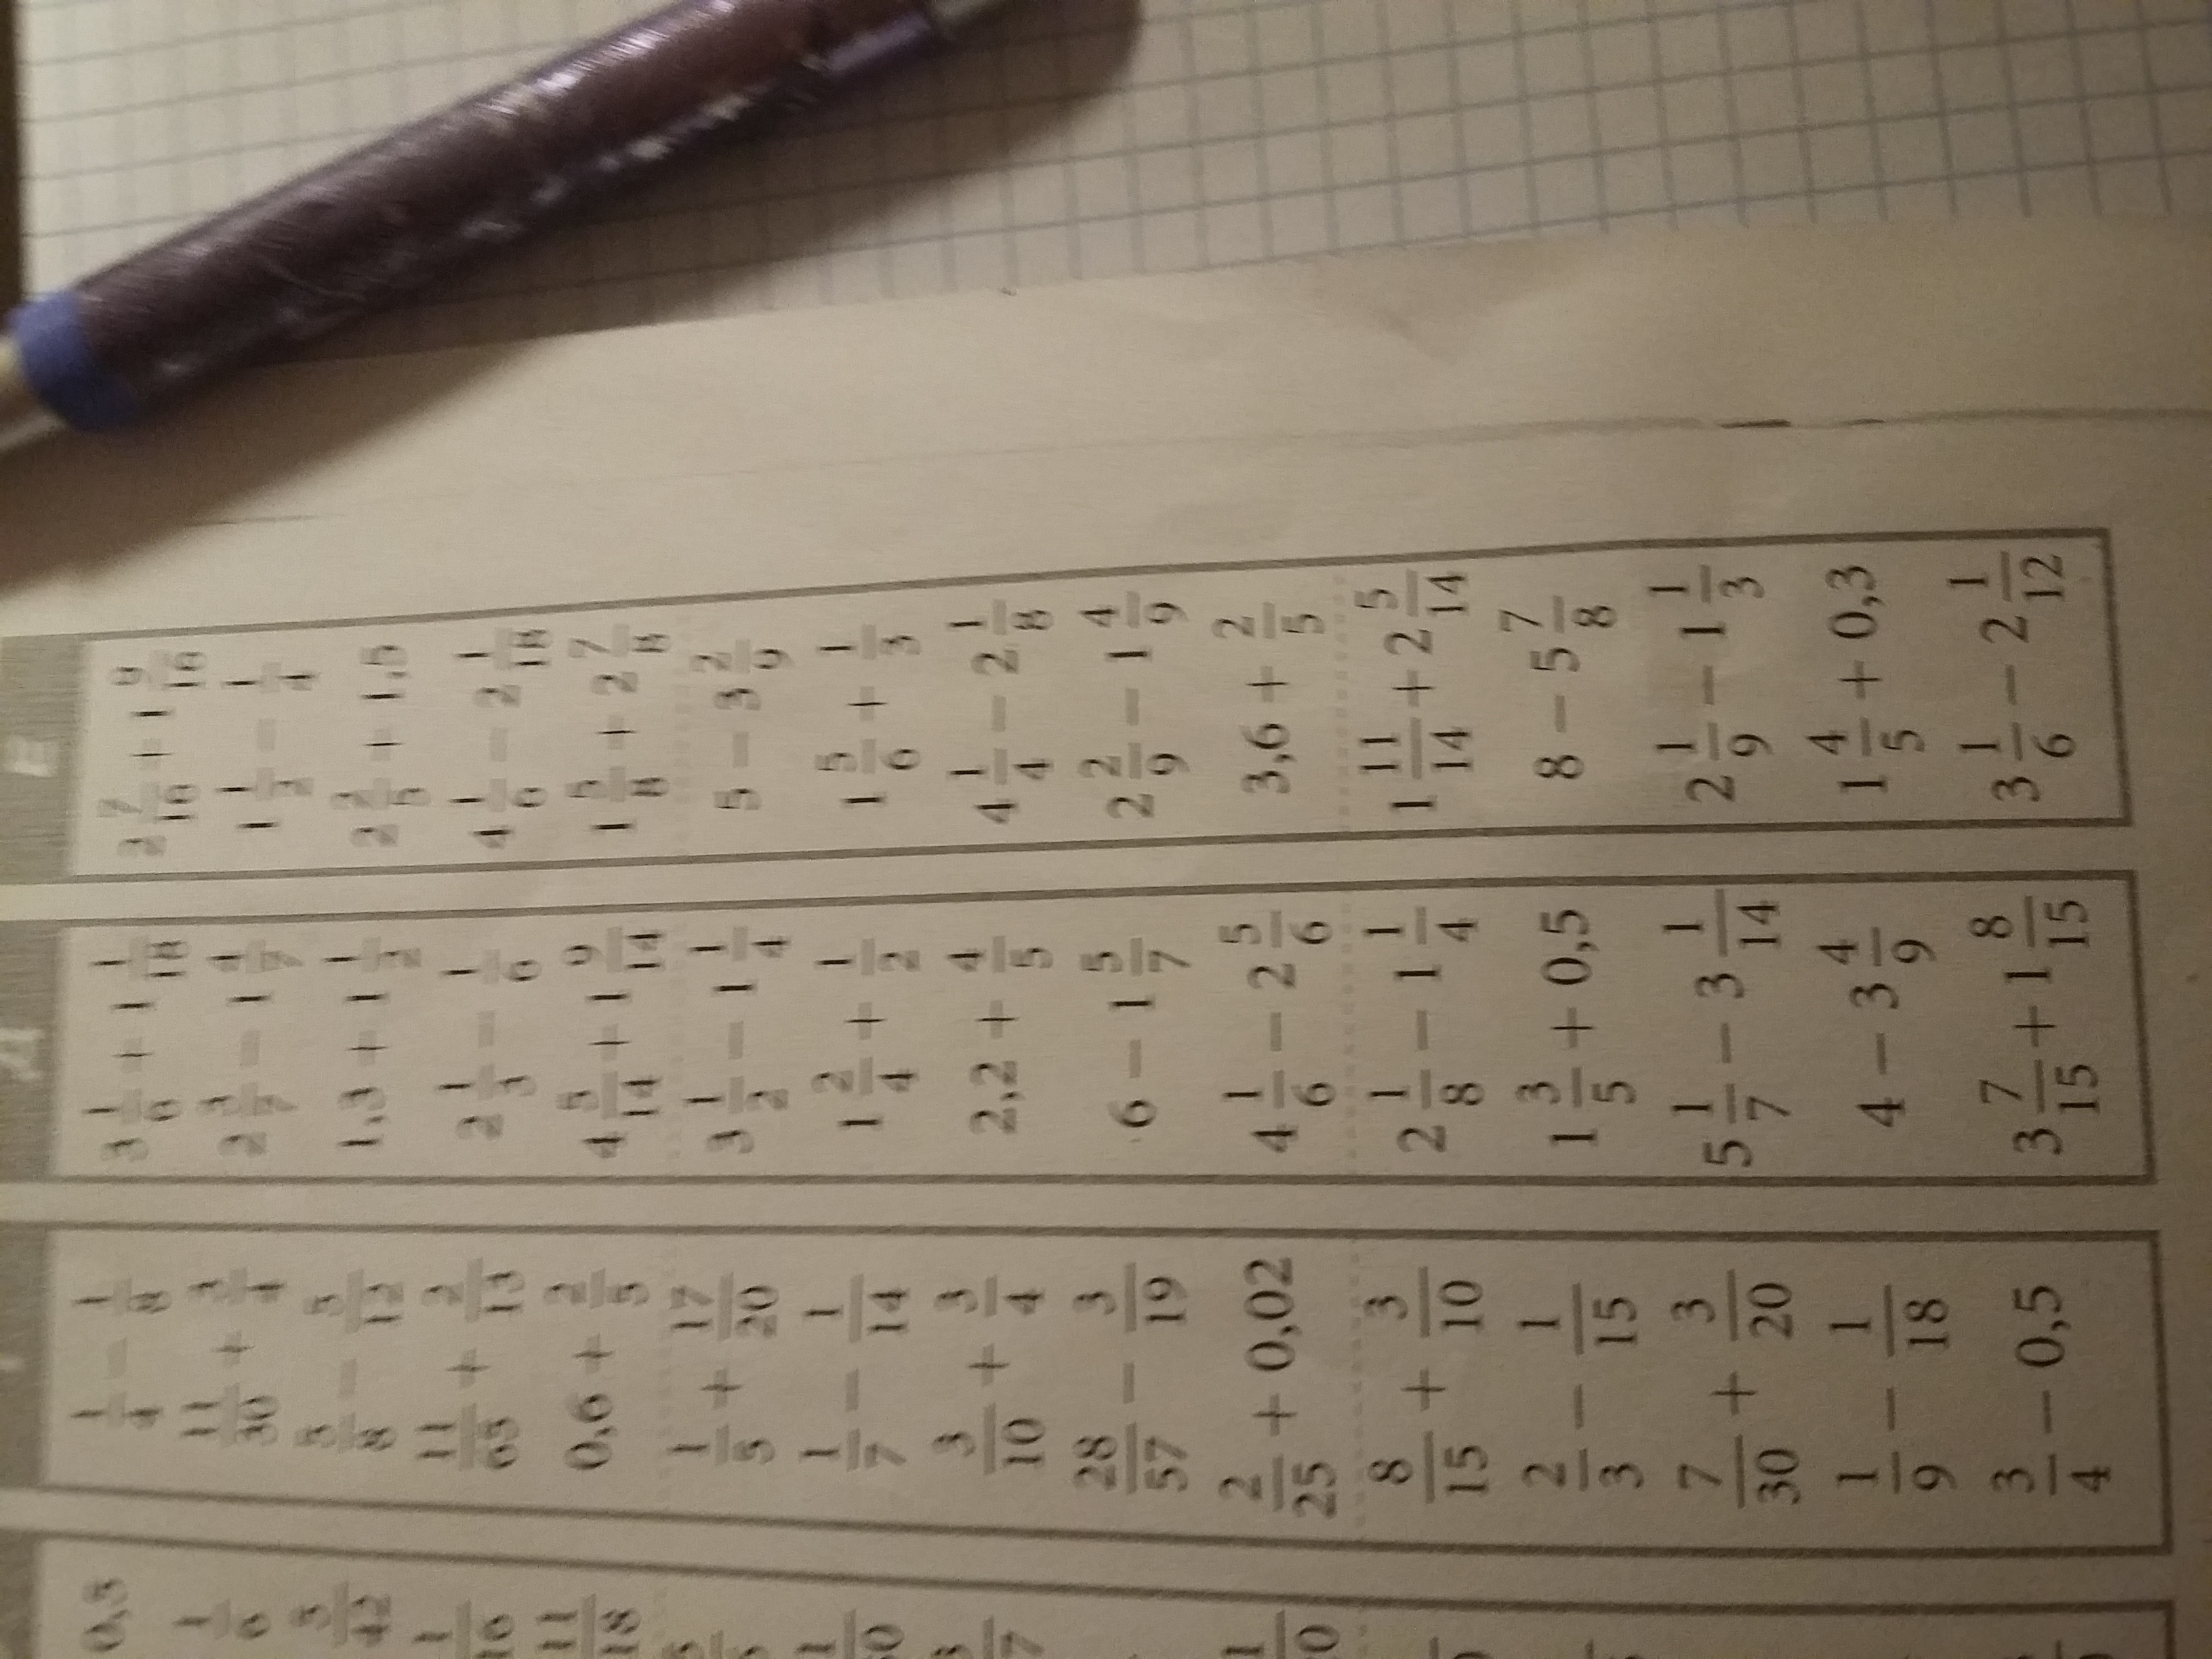 1/4 − 1/8
11/30 + 3/4
5/8 − 5/12
11/65 + 2/13
0,6 + 2/5
1/5 + 17/20
1/7 − 1/14
3/10 + 3/4
28/57 − 3/19
2/25 + 0,02
8/15 + 3/10
2/3 − 1/15
7/30 + 3/20
1/9 − 1/18
3/4 − 0,5
Д
3 1/6 + 1 1/18
2 3/7 − 1 4/7
1,3 + 1 1/2
2 1/3 − 1/6
4 5/14 + 1 9/14
3 1/2 − 1 1/4
1 2/4 + 1/2
2,2 + 4/5
6 − 1 5/7
4 1/6 − 2 5/6
2 1/8 − 1 1/4
1 3/5 + 0,5
5 1/7 − 3 1/14
4 − 3 4/9
3 7/15 + 1 8/15
Е
2 7/16 + 1 9/16
1 1/2 − 1/4
2 2/5 + 1,5
4 1/6 − 2 1/18
1 5/8 + 2 7/8
5 − 3 2/9
1 5/6 + 1/3
4 1/4 − 2 1/8
2 2/9 − 1 4/9
3,6 + 2/5
1 11/14 + 2 5/14
8 − 5 7/8
2 1/9 − 1 1/3
1 4/5 + 0,3
3 1/6 − 2 1/12